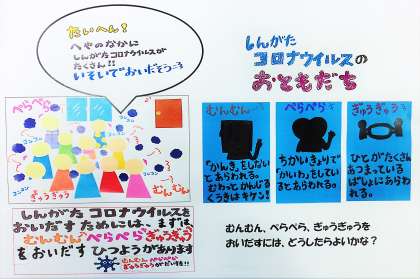 たいへん！
へやのなかに
しんがたコロナウイルスが
たくさん！！
いそいでおいだそう→3
ぺらぺら
コンコン
コンコン
ぎゅうぎゅう
むんむん
しんがたコロナウイルスを
おいだすためには、まずは、
むんむんぺらぺらぎゅうぎゅう
をおいだすひつようがあります
むんむんぺらぺら
ぎゅうぎゅうがだいすき！！
しんがた
コロナウイルスの
おともだち
むんむん
「かんき」をしないとあらわれる。
むわっとかんじる
くうきはキケン！
ぺらぺら
ちかいきょりで
「かいわ」をしてい
るとあらわれる。
ぎゅうぎゅう
ひとがたくさん
あつまっている
ばしょにあらわ
れる。
むんむん、ぺらぺら、ぎゅうぎゅうを
おいだすには、どうしたらよいかな？